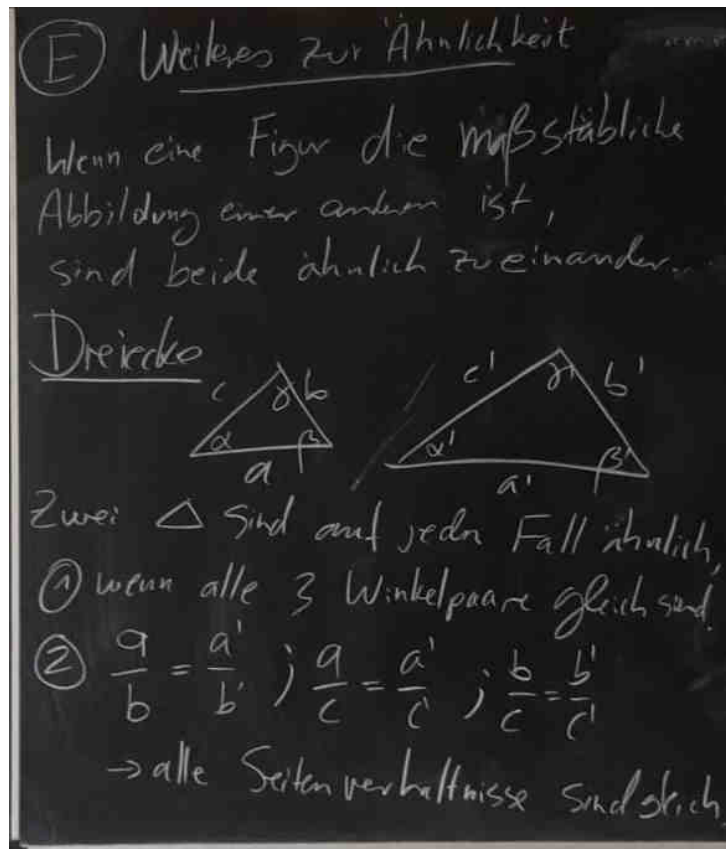 E Weiteres zur Ähnlichkeit
Wenn eine Figur die maßstäbliche
Abbildung einer anderen ist,
sind beide ähnlich zueinander.
Dreiecke
c γ b c' γ' b'
α β α' β'
a a'
Zwei △ sind auf jeden Fall ähnlich,
① wenn alle 3 Winkelpaare gleich sind.
② a/b = a'/b' ; a/c = a'/c' ; b/c = b'/c'
→ alle Seitenverhältnisse sind gleich